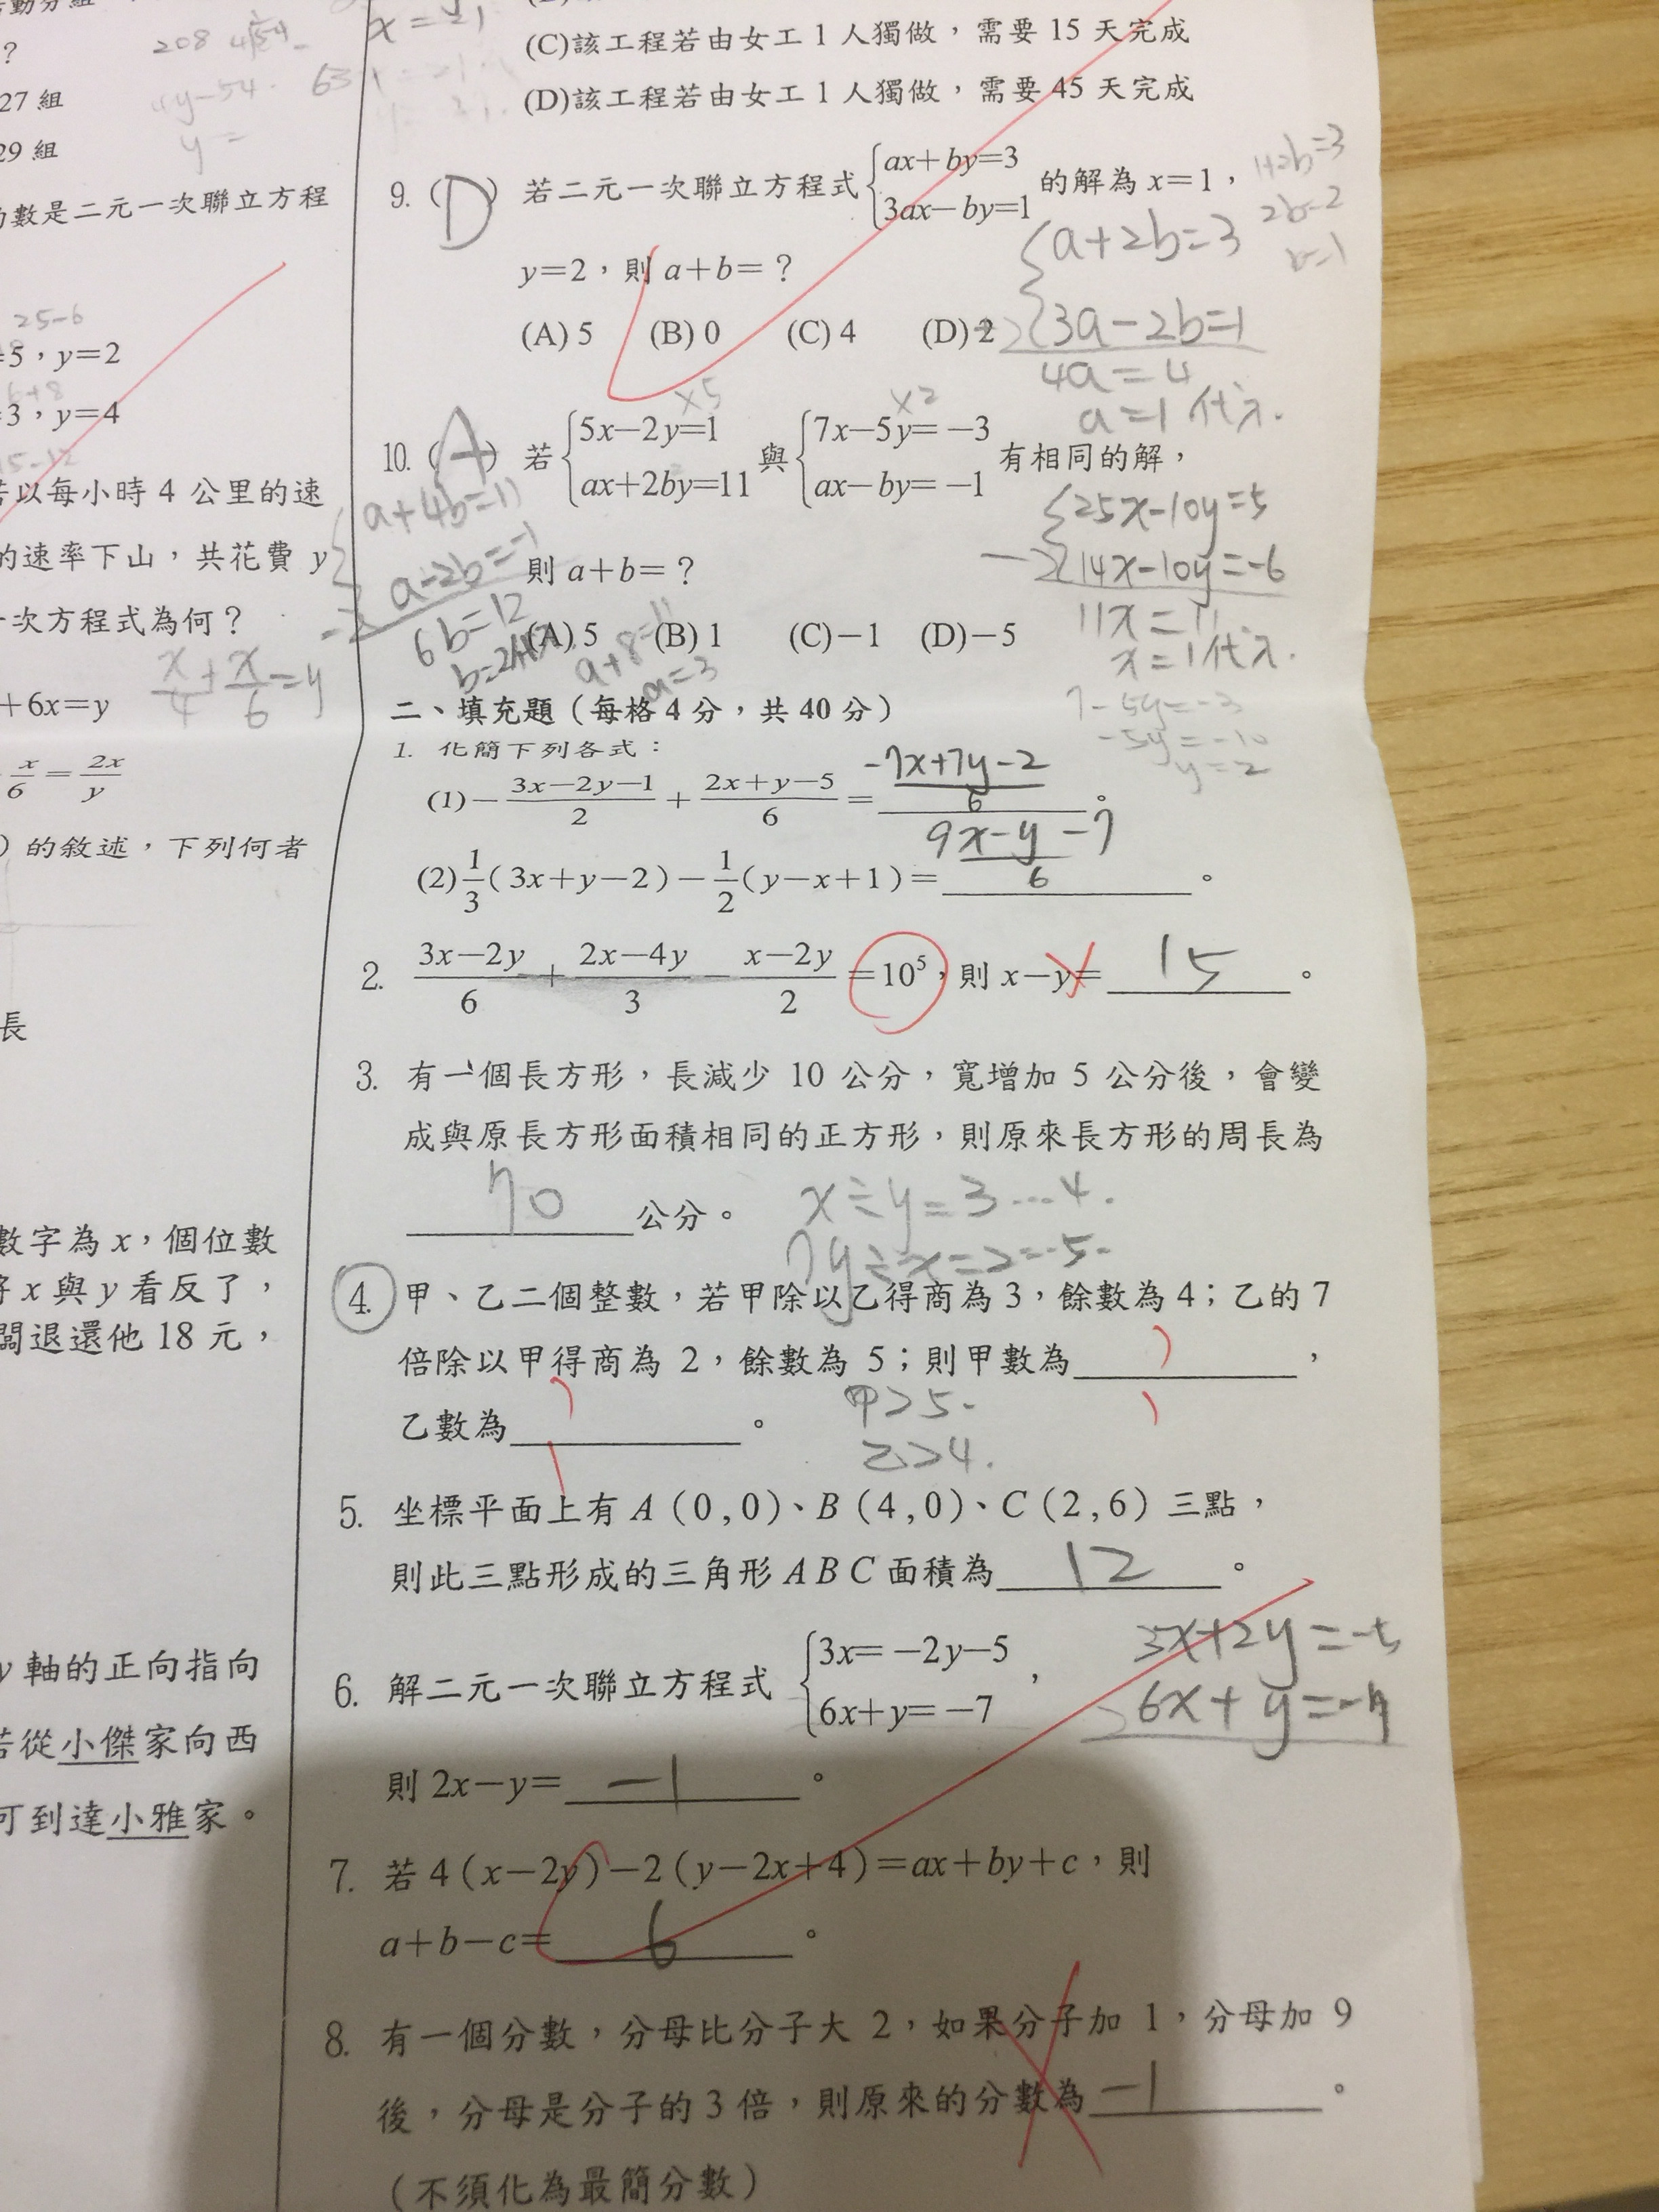 208
?
27 組
29 組
數是二元一次聯立方程
25-6
=5，y=2
6+8
=3，y=4
15-12
若以每小時 4 公里的速
的速率下山，共花費 y
一次方程式為何？
+6x=y
x/4+x/6=y
x/6=2x/y
) 的敘述，下列何者
長
數字為 x，個位數
將 x 與 y 看反了，
闆退還他 18 元，
y 軸的正向指向
若從小傑家向西
可到達小雅家。
(C)該工程若由女工 1 人獨做，需要 15 天完成
(D)該工程若由女工 1 人獨做，需要 45 天完成
9. (D) 若二元一次聯立方程式{ax+by=3
3ax-by=1 的解為 x=1，
y=2，則 a+b=？
(A) 5 (B) 0 (C) 4 (D) 2
1+2b=3
2b=2
b=1
{a+2b=3
3a-2b=1
4a=4
a=1 代入.
10. (A) 若{5x-2y=1
ax+2by=11 與{7x-5y=-3
ax-by=-1 有相同的解，
×5
×2
則 a+b=？
(A) 5 (B) 1 (C)-1 (D)-5
{a+4b=11
a-2b=-1
6b=12
b=2代入.
a+8=11
a=3
{25x-10y=5
14x-10y=-6
11x=11
x=1代入.
7-5y=-3
-5y=-10
y=2
二、填充題（每格 4 分，共 40 分）
1. 化簡下列各式：
(1)-(3x-2y-1)/2+(2x+y-5)/6=(-7x+7y-2)/6。
(2)1/3(3x+y-2)-1/2(y-x+1)=(9x-y-7)/6。
2. (3x-2y)/6+(2x-4y)/3-(x-2y)/2=10⁵，則 x-y=15。
3. 有一個長方形，長減少 10 公分，寬增加 5 公分後，會變
成與原長方形面積相同的正方形，則原來長方形的周長為
70公分。
x÷y=3…4.
7y÷x=2…5.
4. 甲、乙二個整數，若甲除以乙得商為 3，餘數為 4；乙的 7
倍除以甲得商為 2，餘數為 5；則甲數為？，
乙數為？。
甲>5.
乙>4.
5. 坐標平面上有 A (0,0)、B (4,0)、C (2,6) 三點，
則此三點形成的三角形 ABC 面積為12。
6. 解二元一次聯立方程式 {3x=-2y-5
6x+y=-7，
則 2x-y=-1。
3x+2y=-5
6x+y=-7
7. 若 4(x-2y)-2(y-2x+4)=ax+by+c，則
a+b-c=6。
8. 有一個分數，分母比分子大 2，如果分子加 1，分母加 9
後，分母是分子的 3 倍，則原來的分數為-1。
（不須化為最簡分數）